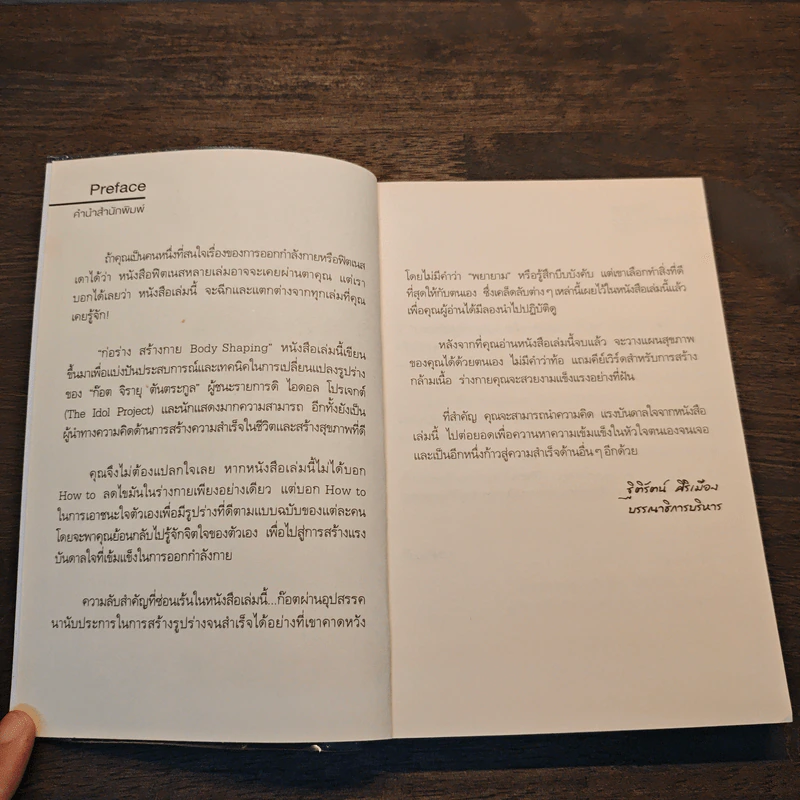 Preface
คำนำสำนักพิมพ์
ถ้าคุณเป็นคนหนึ่งที่สนใจเรื่องของการออกกำลังกายหรือฟิตเนส
เดาได้ว่า หนังสือฟิตเนสหลายเล่มอาจจะเคยผ่านตาคุณ แต่เรา
บอกได้เลยว่า หนังสือเล่มนี้ จะฉีกและแตกต่างจากทุกเล่มที่คุณ
เคยรู้จัก!
"ก่อร่าง สร้างกาย Body Shaping" หนังสือเล่มนี้เขียน
ขึ้นมาเพื่อแบ่งปันประสบการณ์และเทคนิคในการเปลี่ยนแปลงรูปร่าง
ของ "ก๊อต จิรายุ ตันตระกูล" ผู้ชนะรายการดิ ไอดอล โปรเจกต์
(The Idol Project) และนักแสดงมากความสามารถ อีกทั้งยังเป็น
ผู้นำทางความคิดด้านการสร้างความสำเร็จในชีวิตและสร้างสุขภาพที่ดี
คุณจึงไม่ต้องแปลกใจเลย หากหนังสือเล่มนี้ไม่ได้บอก
How to ลดไขมันในร่างกายเพียงอย่างเดียว แต่บอก How to
ในการเอาชนะใจตัวเองเพื่อมีรูปร่างที่ดีตามแบบฉบับของแต่ละคน
โดยจะพาคุณย้อนกลับไปรู้จักจิตใจของตัวเอง เพื่อไปสู่การสร้างแรง
บันดาลใจที่เข้มแข็งในการออกกำลังกาย
ความลับสำคัญที่ซ่อนเร้นในหนังสือเล่มนี้...ก๊อตผ่านอุปสรรค
นานัปประการในการสร้างรูปร่างจนสำเร็จได้อย่างที่เขาคาดหวัง
โดยไม่มีคำว่า "พยายาม" หรือรู้สึกบีบบังคับ แต่เขาเลือกทำสิ่งที่ดี
ที่สุดให้กับตนเอง ซึ่งเคล็ดลับต่าง ๆ เหล่านี้เผยไว้ในหนังสือเล่มนี้แล้ว
เพื่อคุณผู้อ่านได้มีลองนำไปปฏิบัติดู
หลังจากที่คุณอ่านหนังสือเล่มนี้จบแล้ว จะวางแผนสุขภาพ
ของคุณได้ด้วยตนเอง ไม่มีคำว่าท้อ แถมคีย์เวิร์ดสำหรับการสร้าง
กล้ามเนื้อ ร่างกายคุณจะสวยงามแข็งแรงอย่างที่ฝัน
ที่สำคัญ คุณจะสามารถนำความคิด แรงบันดาลใจจากหนังสือ
เล่มนี้ ไปต่อยอดเพื่อควานหาความเข้มแข็งในหัวใจตนเองจนเจอ
และเป็นอีกหนึ่งก้าวสู่ความสำเร็จด้านอื่น ๆ อีกด้วย
ฐิติรัตน์ ศิริเมือง
บรรณาธิการบริหาร